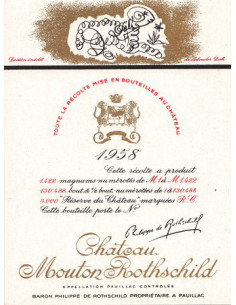 Dessin inédit de Salvador Dali
TOUTE LA RÉCOLTE MISE EN BOUTEILLES AU CHÂTEAU
1958
Cette récolte a produit
1.422 magnums numérotés de M 1 à M 1422
130.488 bout. & ½ bout. numérotées de 1 à 130488
3.000 "Réserve du Château" marquées R.C.
Cette bouteille porte le Nº
Philippe de Rothschild
Château
Mouton Rothschild
APPELLATION PAUILLAC CONTROLÉE
BARON PHILIPPE DE ROTHSCHILD PROPRIÉTAIRE A PAUILLAC